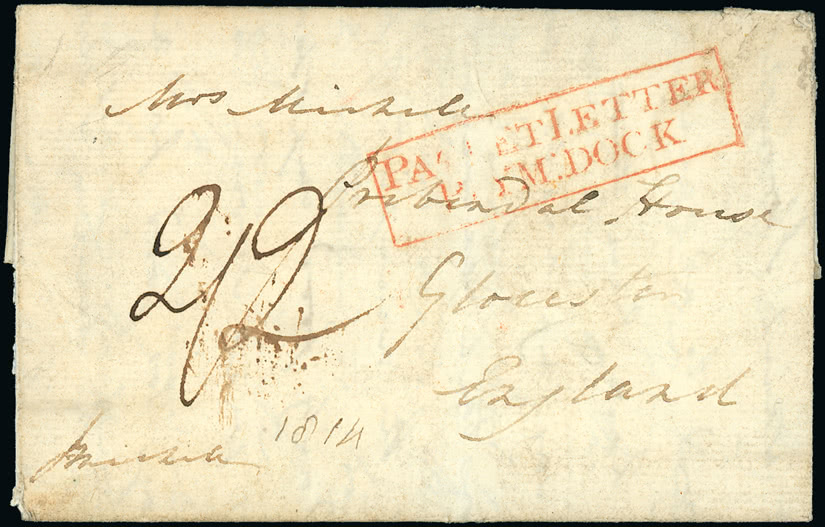 Mrs Michell
PACKET LETTER
PLYM.DOCK
Prebendal House
2/2
Gloucester
England
1814
Michell